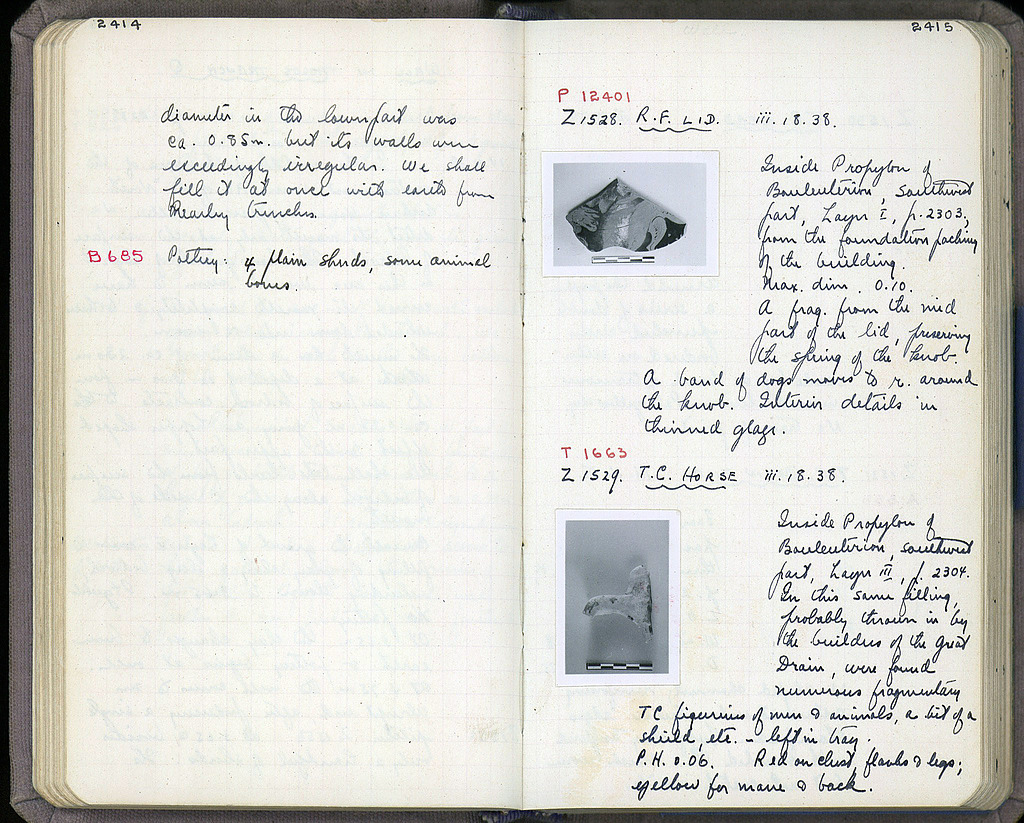 2414
diameter in the lower part was
ca. 0.85m. but its walls were
exceedingly irregular. We shall
fill it at once with earth from
nearby trenches.
B 685 Pottery: 4 plain sherds, some animal
bones.
2415
P 12401
Z 1528. R.F. LID. iii.18.38.
Inside Propylon of
Bouleuterion, southwest
part, Layer I, p. 2303,
from the foundation packing
of the building.
Max. dim. 0.10.
A frag. from the mid
part of the lid, preserving
the spring of the knob.
A band of dogs moves to r. around
the knob. Interior details in
thinned glaze.
T 1663
Z 1529. T.C. HORSE iii.18.38.
Inside Propylon of
Bouleuterion, southwest
part, Layer III, p. 2304.
In this same filling,
probably thrown in by
the builders of the Great
Drain, were found
numerous fragmentary
TC figurines of men & animals, a bit of a
shield, etc. - left in tray.
P.H. 0.06. Red on chest, flanks & legs;
yellow for mane & back.